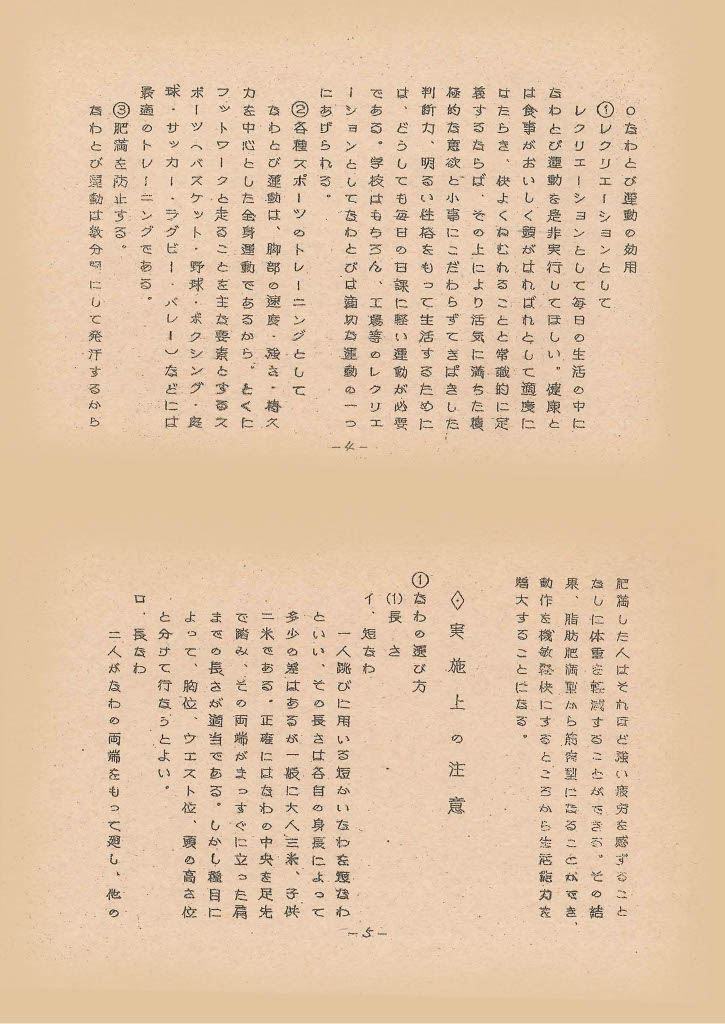 ○なわとび運動の効用
①レクリエーションとして
レクリエーションとして毎日の生活の中に
なわとび運動を是非実行してほしい。健康と
は食事がおいしく頭がはればれとして適度に
はたらき、快よくねむれることと常識的に定
義するならば、その上により活気に満ちた積
極的な意欲と小事にこだわらずてきぱきした
判断力、明るい性格をもって生活するために
は、どうしても毎日の日課に軽い運動が必要
である。学校はもちろん、工場等のレクリエ
ーションとしてなわとびは適切な運動の一つ
にあげられる。
②各種スポーツのトレーニングとして
なわとび運動は、胸部の速度・強さ・持久
力を中心とした全身運動であるから、とくに
フットワークと走ることを主な要素とするス
ポーツ(バスケット・野球・ボクシング・庭
球・サッカー・ラグビー・バレー)などには
最適のトレーニングである。
③肥満を防止する。
なわとび運動は数分間にして発汗するから
-4-
肥満した人はそれほど強い疲労を感ずること
なしに体重を軽減することができる。その結
果、脂肪肥満型から筋肉型になることができ、
動作を機敏軽快にするところから生活能力を
増大することになる。
◇実施上の注意
①なわの選び方
(1)長さ
イ、短なわ
一人跳びに用いる短かいなわを短なわ
といい、その長さは各自の身長によって
多少の差はあるが一般に大人三米、子供
二米である。正確にはなわの中央を足先
で踏み、その両端がまっすぐに立った肩
までの長さが適当である。しかし種目に
よって、胸位、ウエスト位、頭の高さ位
と分けて行なうとよい。
ロ、長なわ
二人がなわの両端をもって廻し、他の
-5-